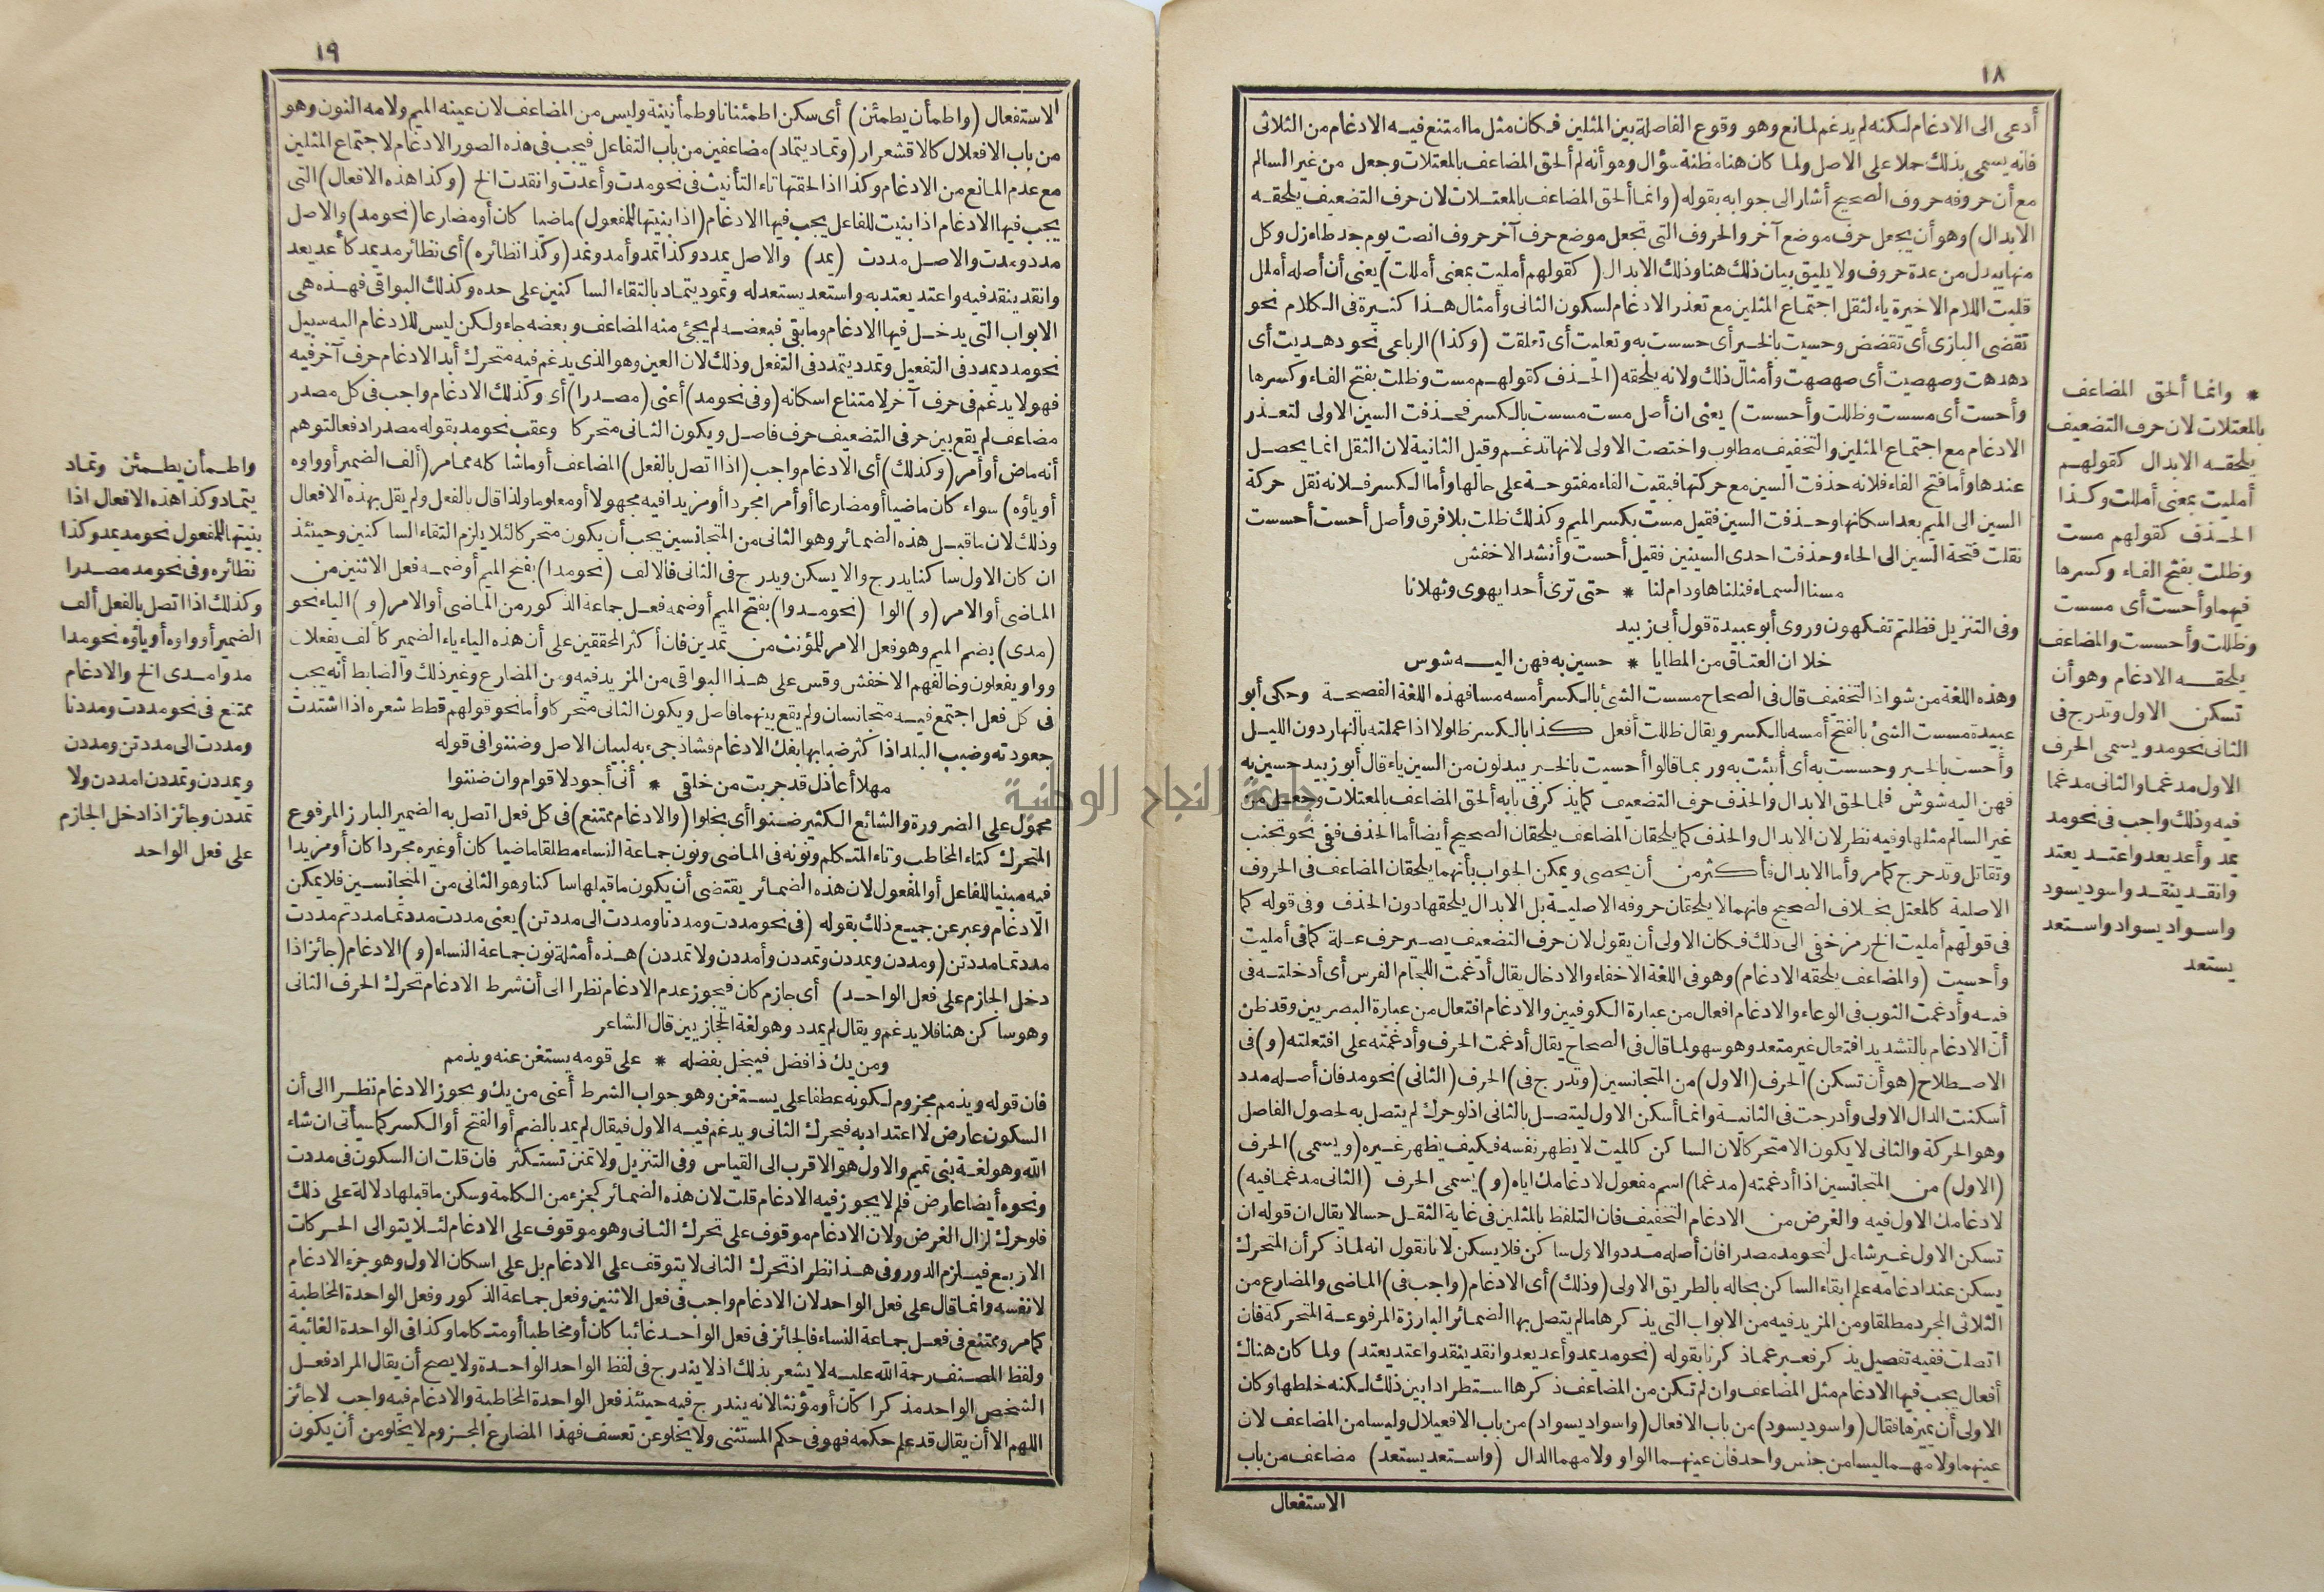 ١٨
أدعى الى الادغام لكنه لم يدغم لمانع وهو وقوع الفاصلة بين المثلين فكان مثل ما امتنع فيه الادغام من الثلاثى
فانه يسمى بذلك حملا على الاصل ولما كان هنا مظنة سؤال وهو أنه لم ألحق المضاعف بالمعتلات وجعل من غير السالم
مع أن حروفه حروف الصحيح أشار الى جوابه بقوله (وانما ألحق المضاعف بالمعتلات لان حرف التضعيف يلحقه
الابدال) وهو أن يجعل حرف موضع آخر والحروف التى تجعل موضع حرف آخر حروف انصت يوم جد طاه زل وكل
منها يبدل من عدة حروف ولا يليق بيان ذلك هنا وذلك الابدال (كقولهم أمليت بمعنى أمللت) يعنى أن أصله أملل
قلبت اللام الاخيرة ياء لثقل اجتماع المثلين مع تعذر الادغام لسكون الثانى وأمثال هذا كثيرة فى الكلام نحو
تقضى البازى أى تقضض وحسيت بالخبر أى حسست به وتعليت أى تعلقت (وكذا) الرباعى نحو دهديت أى
دهدهت وصهصيت أى صهصهت وأمثال ذلك ولانه يلحقه (الحذف كقولهم مست وظلت بفتح الفاء وكسرها
وأحست أى مسست وظللت وأحسست) يعنى ان أصل مست مسست بالكسر فحذفت السين الاولى لتعذر
الادغام مع اجتماع المثلين والتخفيف مطلوب واختصت الاولى لانها تدغم وقيل الثانية لان الثقل انما يحصل
عندها وأما فتح الفاء فلانه حذفت السين مع حركتها فبقيت الفاء مفتوحة على حالها وأما الكسر فلانه نقل حركة
السين الى الميم بعد اسكانها وحذفت السين فقيل مست بكسر الميم وكذلك ظلت بلا فرق وأصل أحست أحسست
نقلت فتحة السين الى الحاء وحذفت احدى السينين فقيل أحست وأنشد الاخفش
مسنا السماء فنلناها ودام لنا * حتى ترى أحدا يهوى وثهلانا
وفى التنزيل فظلتم تفكهون وروى أبو عبيدة قول أبى زبيد
خلا ان العتاق من المطايا * حسين به فهن اليه شوس
وهذه اللغة من شواذ التخفيف قال فى الصحاح مسست الشئ بالكسر أمسه مسا فهذه اللغة الفصيحة وحكى أبو
عبيدة مسست الشئ بالفتح أمسه بالكسر ويقال ظللت أفعل كذا بالكسر ظلولا اذا عملته بالنهار دون الليل
وأحست بالخبر وحسست به أى أيقنت به وربما قالوا أحسيت بالخبر يبدلون من السين ياء قال أبو زبيد حسين به
فهن اليه شوس فلما لحق الابدال والحذف حرف التضعيف كما يذكر فى بابه ألحق المضاعف بالمعتلات وجعل من
غير السالم مثلها وفيه نظر لان الابدال والحذف كما يلحقان المضاعف يلحقان الصحيح أيضا أما الحذف ففى نحو تجنب
وتقاتل وتدحرج كما مر وأما الابدال فأكثر من أن يحصى ويمكن الجواب بأنهما يلحقان المضاعف فى الحروف
الاصلية كالمعتل بخلاف الصحيح فانهما لا يلحقان حروفه الاصلية بل الابدال يلحقها دون الحذف وفى قوله كما
فى قولهم أمليت الخ رمز خفى الى ذلك فكان الاولى أن يقول لان حرف التضعيف يصير حرف علة كما فى أمليت
وأحسيت (والمضاعف يلحقه الادغام) وهو فى اللغة الاخفاء والادخال يقال أدغمت اللجام الفرس أى أدخلته فى
فيه وأدغمت الثوب فى الوعاء والادغام افعال من عبارة الكوفيين والادغام افتعال من عبارة البصريين وقد ظن
أن الادغام بالتشديد افتعال غير متعد وهو سهو لما قال فى الصحاح يقال أدغمت الحرف وأدغمته على افتعلته (و) فى
الاصطلاح (هو أن تسكن) الحرف (الاول) من المتجانسين (وتدرج فى) الحرف (الثانى) نحو مد فان أصله مدد
أسكنت الدال الاولى وأدرجت فى الثانية وانما أسكن الاول ليتصل بالثانى اذ لو حرك لم يتصل به لحصول الفاصل
وهو الحركة والثانى لا يكون الا متحركا لان الساكن كالميت لا يظهر نفسه فكيف يظهر غيره (ويسمى) الحرف
(الاول) من المتجانسين اذا أدغمته (مدغما) اسم مفعول لادغامك اياه (و) يسمى الحرف (الثانى مدغما فيه)
لادغامك الاول فيه والغرض من الادغام التخفيف فان التلفظ بالمثلين فى غاية الثقل حسا لا يقال ان قوله ان
تسكن الاول غير شامل لنحو مد مصدرا فان أصله مدد والاول ساكن فلا يسكن لانا نقول انه لما ذكر أن المتحرك
يسكن عند ادغامه علم ابقاء الساكن بحاله بالطريق الاولى (وذلك) أى الادغام (واجب فى) الماضى والمضارع من
الثلاثى المجرد مطلقا ومن المزيد فيه من الابواب التى يذكرها ما لم يتصل بها الضمائر البارزة المرفوعة المتحركة فان
اتصلت ففيه تفصيل يذكر فعبر عما ذكرنا بقوله (نحو مد يمد وأعد يعد وانقد ينقد واعتد يعتد) ولما كان هناك
أفعال يجب فيها الادغام مثل المضاعف وان لم تكن من المضاعف ذكرها استطرادا بين ذلك لكنه خلطها وكان
الاولى أن يميزها فقال (واسود يسود) من باب الافعال (واسواد يسواد) من باب الافعيلال وليسا من المضاعف لان
عينهما ولامهما ليسا من جنس واحد فان عينهما الواو ولامهما الدال (واستعد يستعد) مضاعف من باب
الاستفعال
* وانما ألحق المضاعف
بالمعتلات لان حرف التضعيف
يلحقه الابدال كقولهم
أمليت بمعنى أمللت وكذا
الحذف كقولهم مست
وظلت بفتح الفاء وكسرها
فيهما وأحست أى مسست
وظللت وأحسست والمضاعف
يلحقه الادغام وهو أن
تسكن الاول وتدرج فى
الثانى نحو مد ويسمى الحرف
الاول مدغما والثانى مدغما
فيه وذلك واجب فى نحو مد
يمد وأعد يعد واعتد يعتد
وانقد ينقد واسود يسود
واسواد يسواد واستعد
يستعد
١٩
الاستفعال (واطمأن يطمئن) أى سكن اطمئنانا وطمأنينة وليس من المضاعف لان عينه الميم ولامه النون وهو
من باب الافعلال كالاقشعرار (وتماد يتماد) مضاعفين من باب التفاعل فيجب فى هذه الصور الادغام لاجتماع المثلين
مع عدم المانع من الادغام وكذا اذا لحقتها تاء التأنيث فى نحو مدت وأعدت وانقدت الخ (وكذا هذه الافعال) التى
يجب فيها الادغام اذا بنيت للفاعل يجب فيها الادغام (اذا بنيتها للمفعول) ماضيا كان أو مضارعا (نحو مد) والاصل
مدد ومدت والاصل مددت (يمد) والاصل يمدد وكذا تمد وأمد ونمد (وكذا نظائره) أى نظائر مد يمد كأعد يعد
وانقد ينقد فيه واعتد يعتد به واستعد يستعد له وتمود يتماد بالتقاء الساكنين على حده وكذلك البواقى فهذه هى
الابواب التى يدخل فيها الادغام وما بقى فبعضه لم يجئ منه المضاعف وبعضه جاء ولكن ليس للادغام اليه سبيل
نحو مدد يمدد فى التفعيل وتمدد يتمدد فى التفعل وذلك لان العين وهو الذى يدغم فيه متحرك أبدا لادغام حرف آخر فيه
فهو لا يدغم فى حرف آخر لامتناع اسكانه (وفى نحو مد) أعنى (مصدرا) أى وكذلك الادغام واجب فى كل مصدر
مضاعف لم يقع بين حرفى التضعيف حرف فاصل ويكون الثانى متحركا وعقب نحو مد بقوله مصدرا دفعا لتوهم
أنه ماض أو أمر (وكذلك) أى الادغام واجب (اذا اتصل بالفعل) المضاعف أو ما شاكله مما مر (ألف الضمير أو واوه
أو ياؤه) سواء كان ماضيا أو مضارعا أو أمرا مجردا أو مزيدا فيه مجهولا أو معلوما ولذا قال بالفعل ولم يقل بهذه الافعال
وذلك لان ما قبل هذه الضمائر وهو الثانى من المتجانسين يجب أن يكون متحركا لئلا يلزم التقاء الساكنين وحينئذ
ان كان الاول ساكنا يدرج والا يسكن ويدرج فى الثانى فالالف (نحو مدا) بفتح الميم أو ضمه فعل الاثنين من
الماضى أو الامر (و) الواو (نحو مدوا) بفتح الميم أو ضمه فعل جماعة الذكور من الماضى أو الامر (و) الياء نحو
(مدى) بضم الميم وهو فعل الامر للمؤنث من تمدين فان أكثر المحققين على أن هذه الياء ياء الضمير كألف يفعلان
وواو يفعلون وخالفهم الاخفش وقس على هذا البواقى من المزيد فيه ومن المضارع وغير ذلك والضابط أنه يجب
فى كل فعل اجتمع فيه متجانسان ولم يقع بينهما فاصل ويكون الثانى متحركا وأما نحو قولهم قطط شعره اذا اشتدت
جعودته وضبب البلد اذا كثر ضبابها بفك الادغام فشاذ جىء به لبيان الاصل وضننوا فى قوله
مهلا أعاذل قد جربت من خلقى * أنى أجود لاقوام وان ضننوا
محمول على الضرورة والشائع الكثير ضنوا أى بخلوا (والادغام ممتنع) فى كل فعل اتصل به الضمير البارز المرفوع
المتحرك كتاء المخاطب وتاء المتكلم ونونه فى الماضى ونون جماعة النساء مطلقا ماضيا كان أو غيره مجردا كان أو مزيدا
فيه مبنيا للفاعل أو المفعول لان هذه الضمائر يقتضى أن يكون ما قبلها ساكنا وهو الثانى من المتجانسين فلا يمكن
الادغام وعبر عن جميع ذلك بقوله (فى نحو مددت ومددنا ومددت الى مددتن) يعنى مددت مددتما مددتم مددت
مددتما مددتن (ومددن ويمددن وتمددن وأمددن ولا تمددن) هذه أمثلة نون جماعة النساء (و) الادغام (جائز اذا
دخل الجازم على فعل الواحد) أى جازم كان فيجوز عدم الادغام نظرا الى أن شرط الادغام تحرك الحرف الثانى
وهو ساكن هنا فلا يدغم ويقال لم يمدد وهو لغة الحجازيين قال الشاعر
ومن يك ذا فضل فيبخل بفضله * على قومه يستغن عنه ويذمم
فان قوله ويذمم مجزوم لكونه عطفا على يستغن وهو جواب الشرط أعنى من يك ويجوز الادغام نظرا الى أن
السكون عارض لا اعتداد به فيحرك الثانى ويدغم فيه الاول فيقال لم يمد بالضم أو الفتح أو الكسر كما سيأتى ان شاء
الله وهو لغة بنى تميم والاول هو الاقرب الى القياس وفى التنزيل ولا تمنن تستكثر فان قلت ان السكون فى مددت
ونحوه أيضا عارض فلم لا يجوز فيه الادغام قلت لان هذه الضمائر كجزء من الكلمة وسكن ما قبلها دلالة على ذلك
فلو حرك لزال الغرض ولان الادغام موقوف على تحرك الثانى وهو موقوف على الادغام لئلا يتوالى الحركات
الاربع فيلزم الدور وفى هذا نظر اذ تحرك الثانى لا يتوقف على الادغام بل على اسكان الاول وهو جزء الادغام
لا نفسه وانما قال على فعل الواحد لان الادغام واجب فى فعل الاثنين وفعل جماعة الذكور وفعل الواحدة المخاطبة
كما مر وممتنع فى فعل جماعة النساء فالجائز فى فعل الواحد غائبا كان أو مخاطبا أو متكلما وكذا فى الواحدة الغائبة
ولفظ المصنف رحمة الله عليه لا يشعر بذلك اذ لا يندرج فى لفظ الواحد الواحدة ولا يصح أن يقال المراد فعل
الشخص الواحد مذكرا كان أو مؤنثا لانه يندرج فيه حينئذ فعل الواحدة المخاطبة والادغام فيه واجب لا جائز
اللهم الا أن يقال قد علم حكمه فهو فى حكم المستثنى ولا يخلو عن تعسف فهذا المضارع المجزوم لا يخلو من أن يكون
واطمأن يطمئن وتماد
يتماد وكذا هذه الافعال اذا
بنيتها للمفعول نحو مد يمد وكذا
نظائره وفى نحو مد مصدرا
وكذلك اذا اتصل بالفعل ألف
الضمير أو واوه أو ياؤه نحو مدا
مدوا مدى الخ والادغام
ممتنع فى نحو مددت ومددنا
ومددت الى مددتن ومددن
ويمددن وتمددن امددن ولا
تمددن وجائز اذا دخل الجازم
على فعل الواحد
جامعة النجاح الوطنية